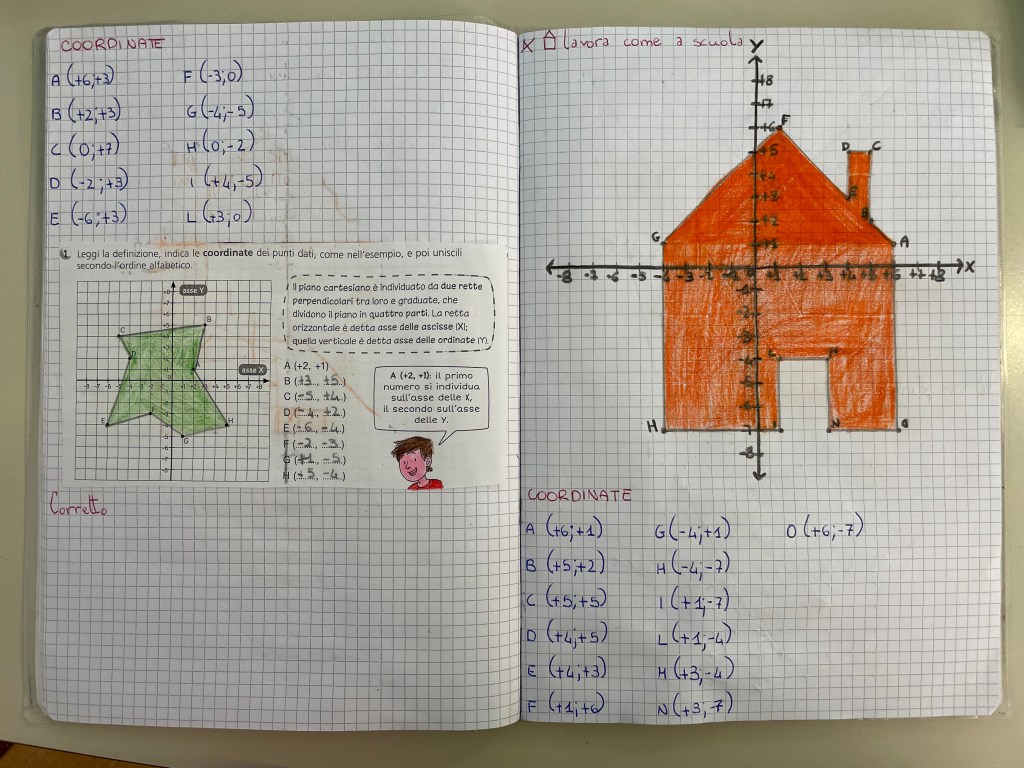 COORDINATE
A (+6;+3) F (-3;0)
B (+2;+3) G (-4;-5)
C (0;+7) H (0;-2)
D (-2;+3) I (+4,-5)
E (-6;+3) L (+3;0)
1 Leggi la definizione, indica le coordinate dei punti dati, come nell'esempio, e poi uniscili
secondo l'ordine alfabetico.
asse Y
asse X
B
C
D
A
E
F
G
H
Il piano cartesiano è individuato da due rette
perpendicolari tra loro e graduate, che
dividono il piano in quattro parti. La retta
orizzontale è detta asse delle ascisse (X);
quella verticale è detta asse delle ordinate (Y).
A (+2, +1)
B (+3, +5)
C (-5, +4)
D (-4, +2)
E (-6, -4)
F (-2, -3)
G (+1, -5)
H (+5, -4)
A (+2, +1): il primo
numero si individua
sull'asse delle X,
il secondo sull'asse
delle Y.
Corretto
X lavora come a scuola
Y
+8
+7
+6 F
+5 D C
+4
+3 E
+2 B
G +1 A
-8 -7 -6 -3 -2 -1 0 +1 +2 +3 +4 +5 +6 +7 +8 X
H -7 I N O
-8
COORDINATE
A (+6;+1) G (-4;+1) O (+6;-7)
B (+5;+2) H (-4;-7)
C (+5;+5) I (+1;-7)
D (+4;+5) L (+1;-4)
E (+4;+3) M (+3,-4)
F (+1;+6) N (+3,-7)